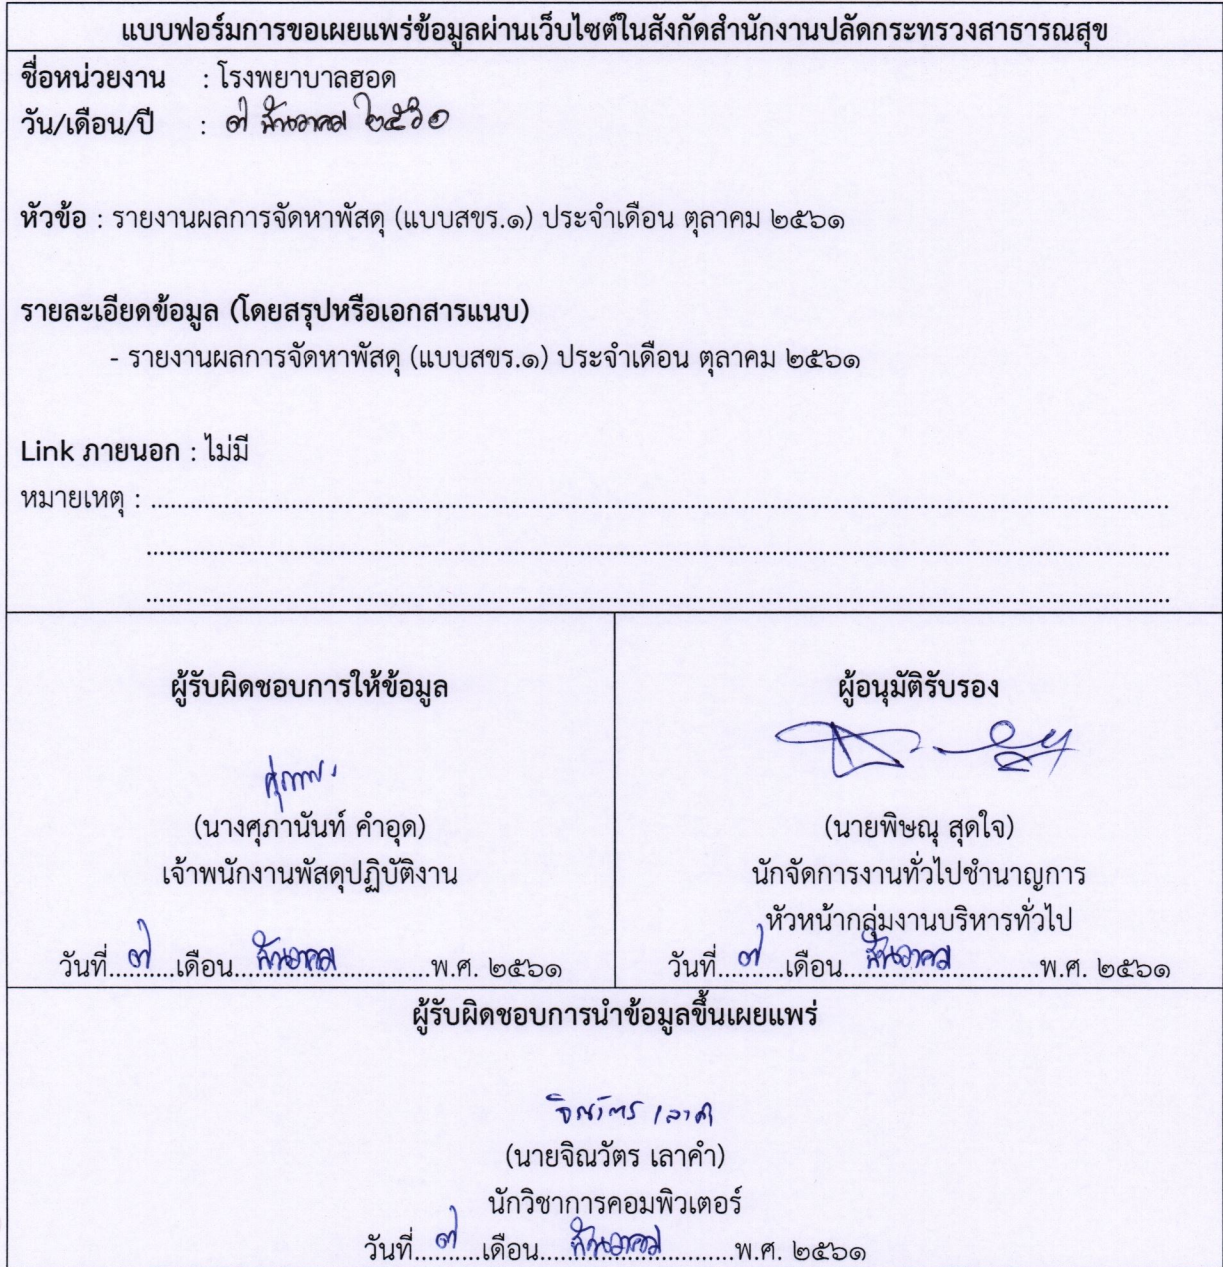 แบบฟอร์มการขอเผยแพร่ข้อมูลผ่านเว็บไซต์ในสังกัดสำนักงานปลัดกระทรวงสาธารณสุข
ชื่อหน่วยงาน : โรงพยาบาลฮอด
วัน/เดือน/ปี : ๗ ธันวาคม ๒๕๖๑
หัวข้อ : รายงานผลการจัดหาพัสดุ (แบบสขร.๑) ประจำเดือน ตุลาคม ๒๕๖๑
รายละเอียดข้อมูล (โดยสรุปหรือเอกสารแนบ)
- รายงานผลการจัดหาพัสดุ (แบบสขร.๑) ประจำเดือน ตุลาคม ๒๕๖๑
Link ภายนอก : ไม่มี
หมายเหตุ :
ผู้รับผิดชอบการให้ข้อมูล
(นางศุภานันท์ คำอุด)
เจ้าพนักงานพัสดุปฏิบัติงาน
วันที่ ๗ เดือน ธันวาคม พ.ศ. ๒๕๖๑
ผู้อนุมัติรับรอง
(นายพิษณุ สุดใจ)
นักจัดการงานทั่วไปชำนาญการ
หัวหน้ากลุ่มงานบริหารทั่วไป
วันที่ ๗ เดือน ธันวาคม พ.ศ. ๒๕๖๑
ผู้รับผิดชอบการนำข้อมูลขึ้นเผยแพร่
จิณวัตร เลาคำ
(นายจิณวัตร เลาคำ)
นักวิชาการคอมพิวเตอร์
วันที่ ๗ เดือน ธันวาคม พ.ศ. ๒๕๖๑